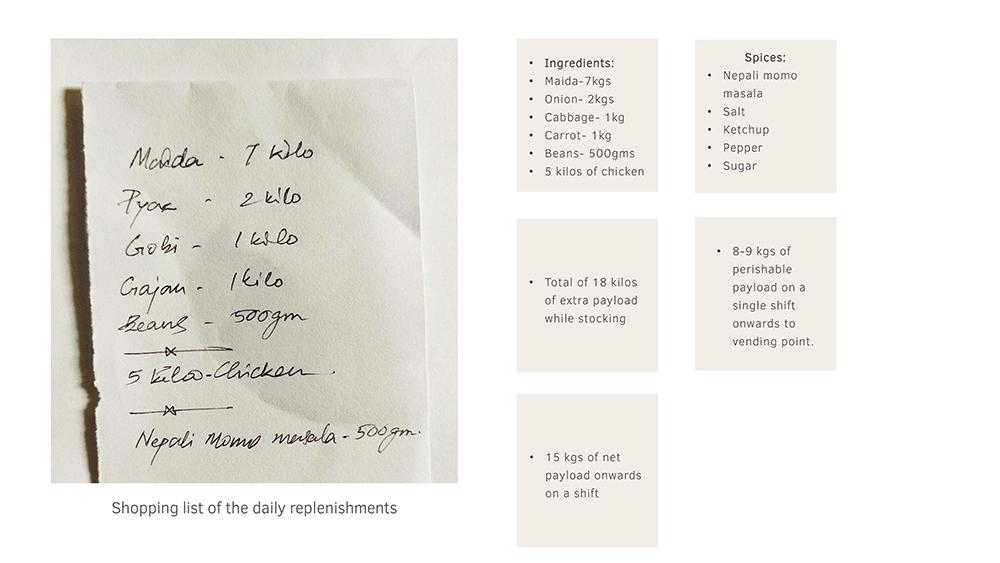 Maida - 7 kilo
Pyaz - 2 kilo
Gobi - 1 kilo
Gajar - 1 kilo
Beans - 500gm
5 kilo-Chicken.
Nepali Momo masala - 500gm.
Shopping list of the daily replenishments
• Ingredients:
• Maida-7kgs
• Onion- 2kgs
• Cabbage- 1kg
• Carrot- 1kg
• Beans- 500gms
• 5 kilos of chicken
Spices:
• Nepali momo
masala
• Salt
• Ketchup
• Pepper
• Sugar
• Total of 18 kilos
of extra payload
while stocking
• 8-9 kgs of
perishable
payload on a
single shift
onwards to
vending point.
• 15 kgs of net
payload onwards
on a shift